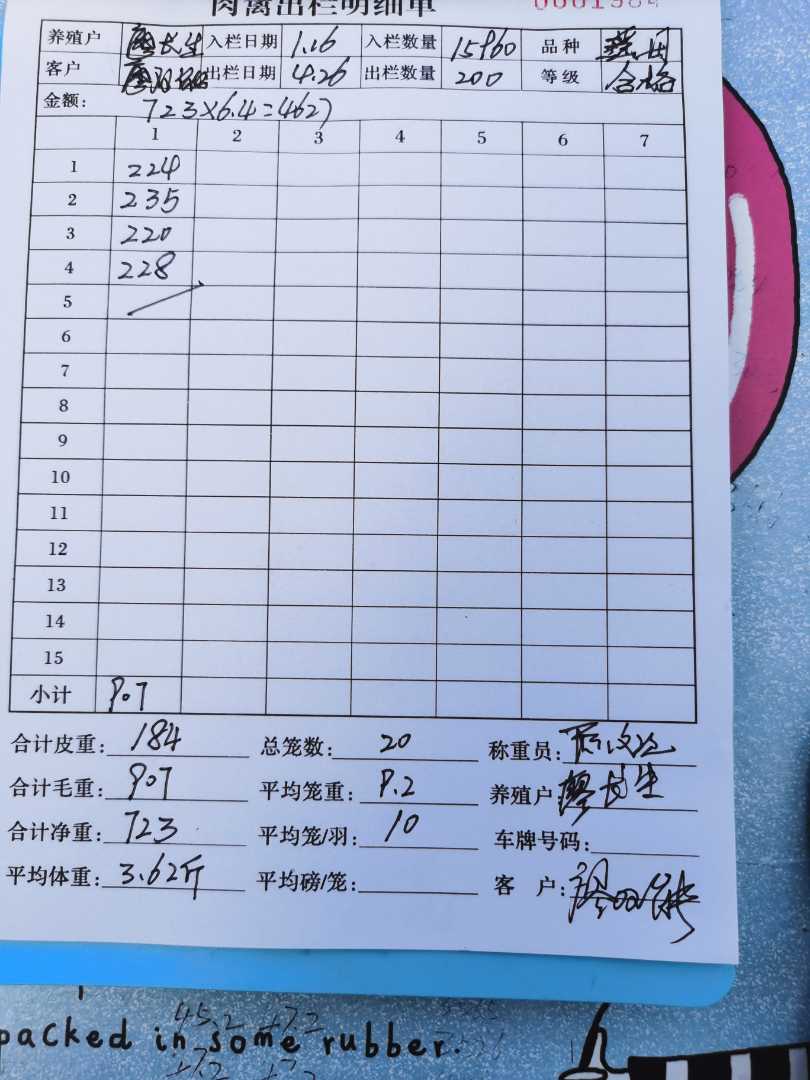 肉禽出栏明细单 0001984
养殖户 廖长生 入栏日期 1.16 入栏数量 15960 品种
客户 出栏日期 4.26 出栏数量 200 等级 合格
金额: 723×6.4=4627
1 2 3 4 5 6 7
1 224
2 235
3 220
4 228
5
6
7
8
9
10
11
12
13
14
15
小计 907
合计皮重: 184 总笼数: 20 称重员:
合计毛重: 907 平均笼重: 9.2 养殖户 廖长生
合计净重: 723 平均笼/羽: 10 车牌号码:
平均体重: 3.62斤 平均磅/笼: 客 户:
packed in some rubber.